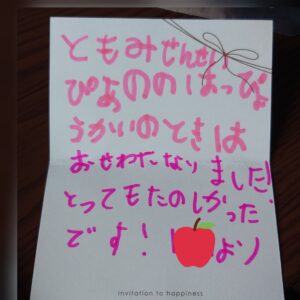 ともみせんせい
ぴあののはっぴょ
うかいのときは
おせわになりました!
とってもたのしかった
です! より
invitation to happiness